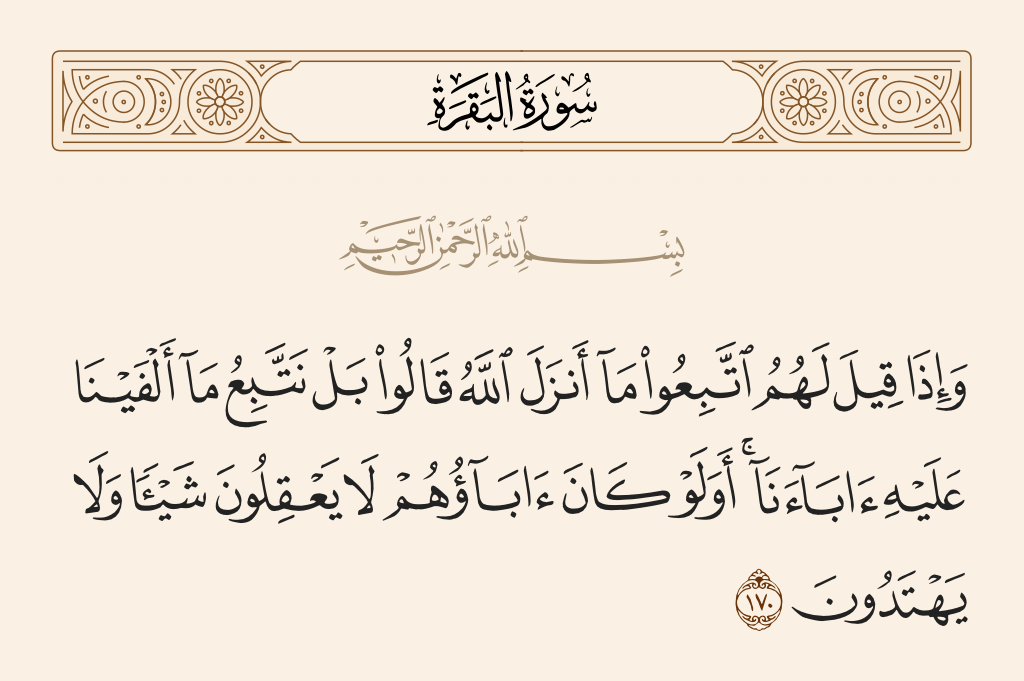 سُورَةُ البَقَرَةِ
بِسْمِ ٱللَّهِ ٱلرَّحْمَٰنِ ٱلرَّحِيمِ
وَإِذَا قِيلَ لَهُمُ ٱتَّبِعُوا۟ مَآ أَنزَلَ ٱللَّهُ قَالُوا۟ بَلْ نَتَّبِعُ مَآ أَلْفَيْنَا
عَلَيْهِ ءَابَآءَنَآ ۚ أَوَلَوْ كَانَ ءَابَآؤُهُمْ لَا يَعْقِلُونَ شَيْـًٔا وَلَا
يَهْتَدُونَ ١٧٠